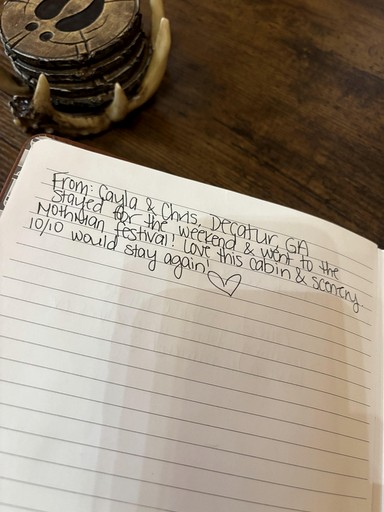 From: Cayla & Chris, Decatur, GA
Stayed for the weekend & went to the
Nothman festival! Love this cabin & scenery
10/10 would stay again! ♡